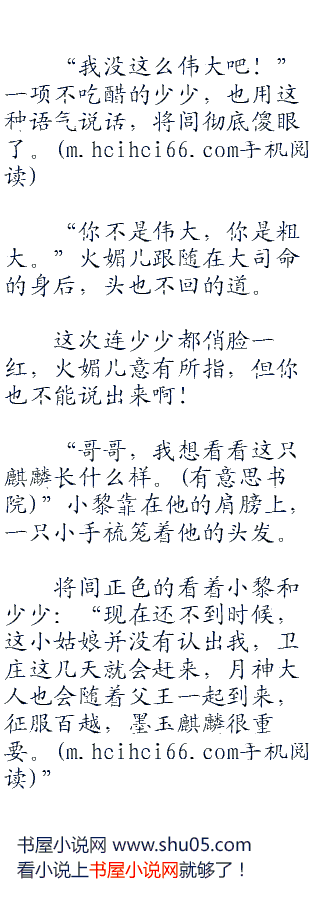 “我没这么伟大吧！”
一项不吃醋的少少，也用这
种语气说话，将闾彻底傻眼
了。(m.hcihci66.com手机阅
读)
“你不是伟大，你是粗
大。”火媚儿跟随在大司命
的身后，头也不回的道。
这次连少少都俏脸一
红，火媚儿意有所指，但你
也不能说出来啊！
“哥哥，我想看看这只
麒麟长什么样。(有意思书
院)”小黎靠在他的肩膀上，
一只小手梳笼着他的头发。
将闾正色的看着小黎和
少少：“现在还不到时候，
这小姑娘并没有认出我，卫
庄这几天就会赶来，月神大
人也会随着父王一起到来，
征服百越，墨玉麒麟很重
要。(m.hcihci66.com手机阅
读)”
书屋小说网 www.shu05.com
看小说上书屋小说网就够了！